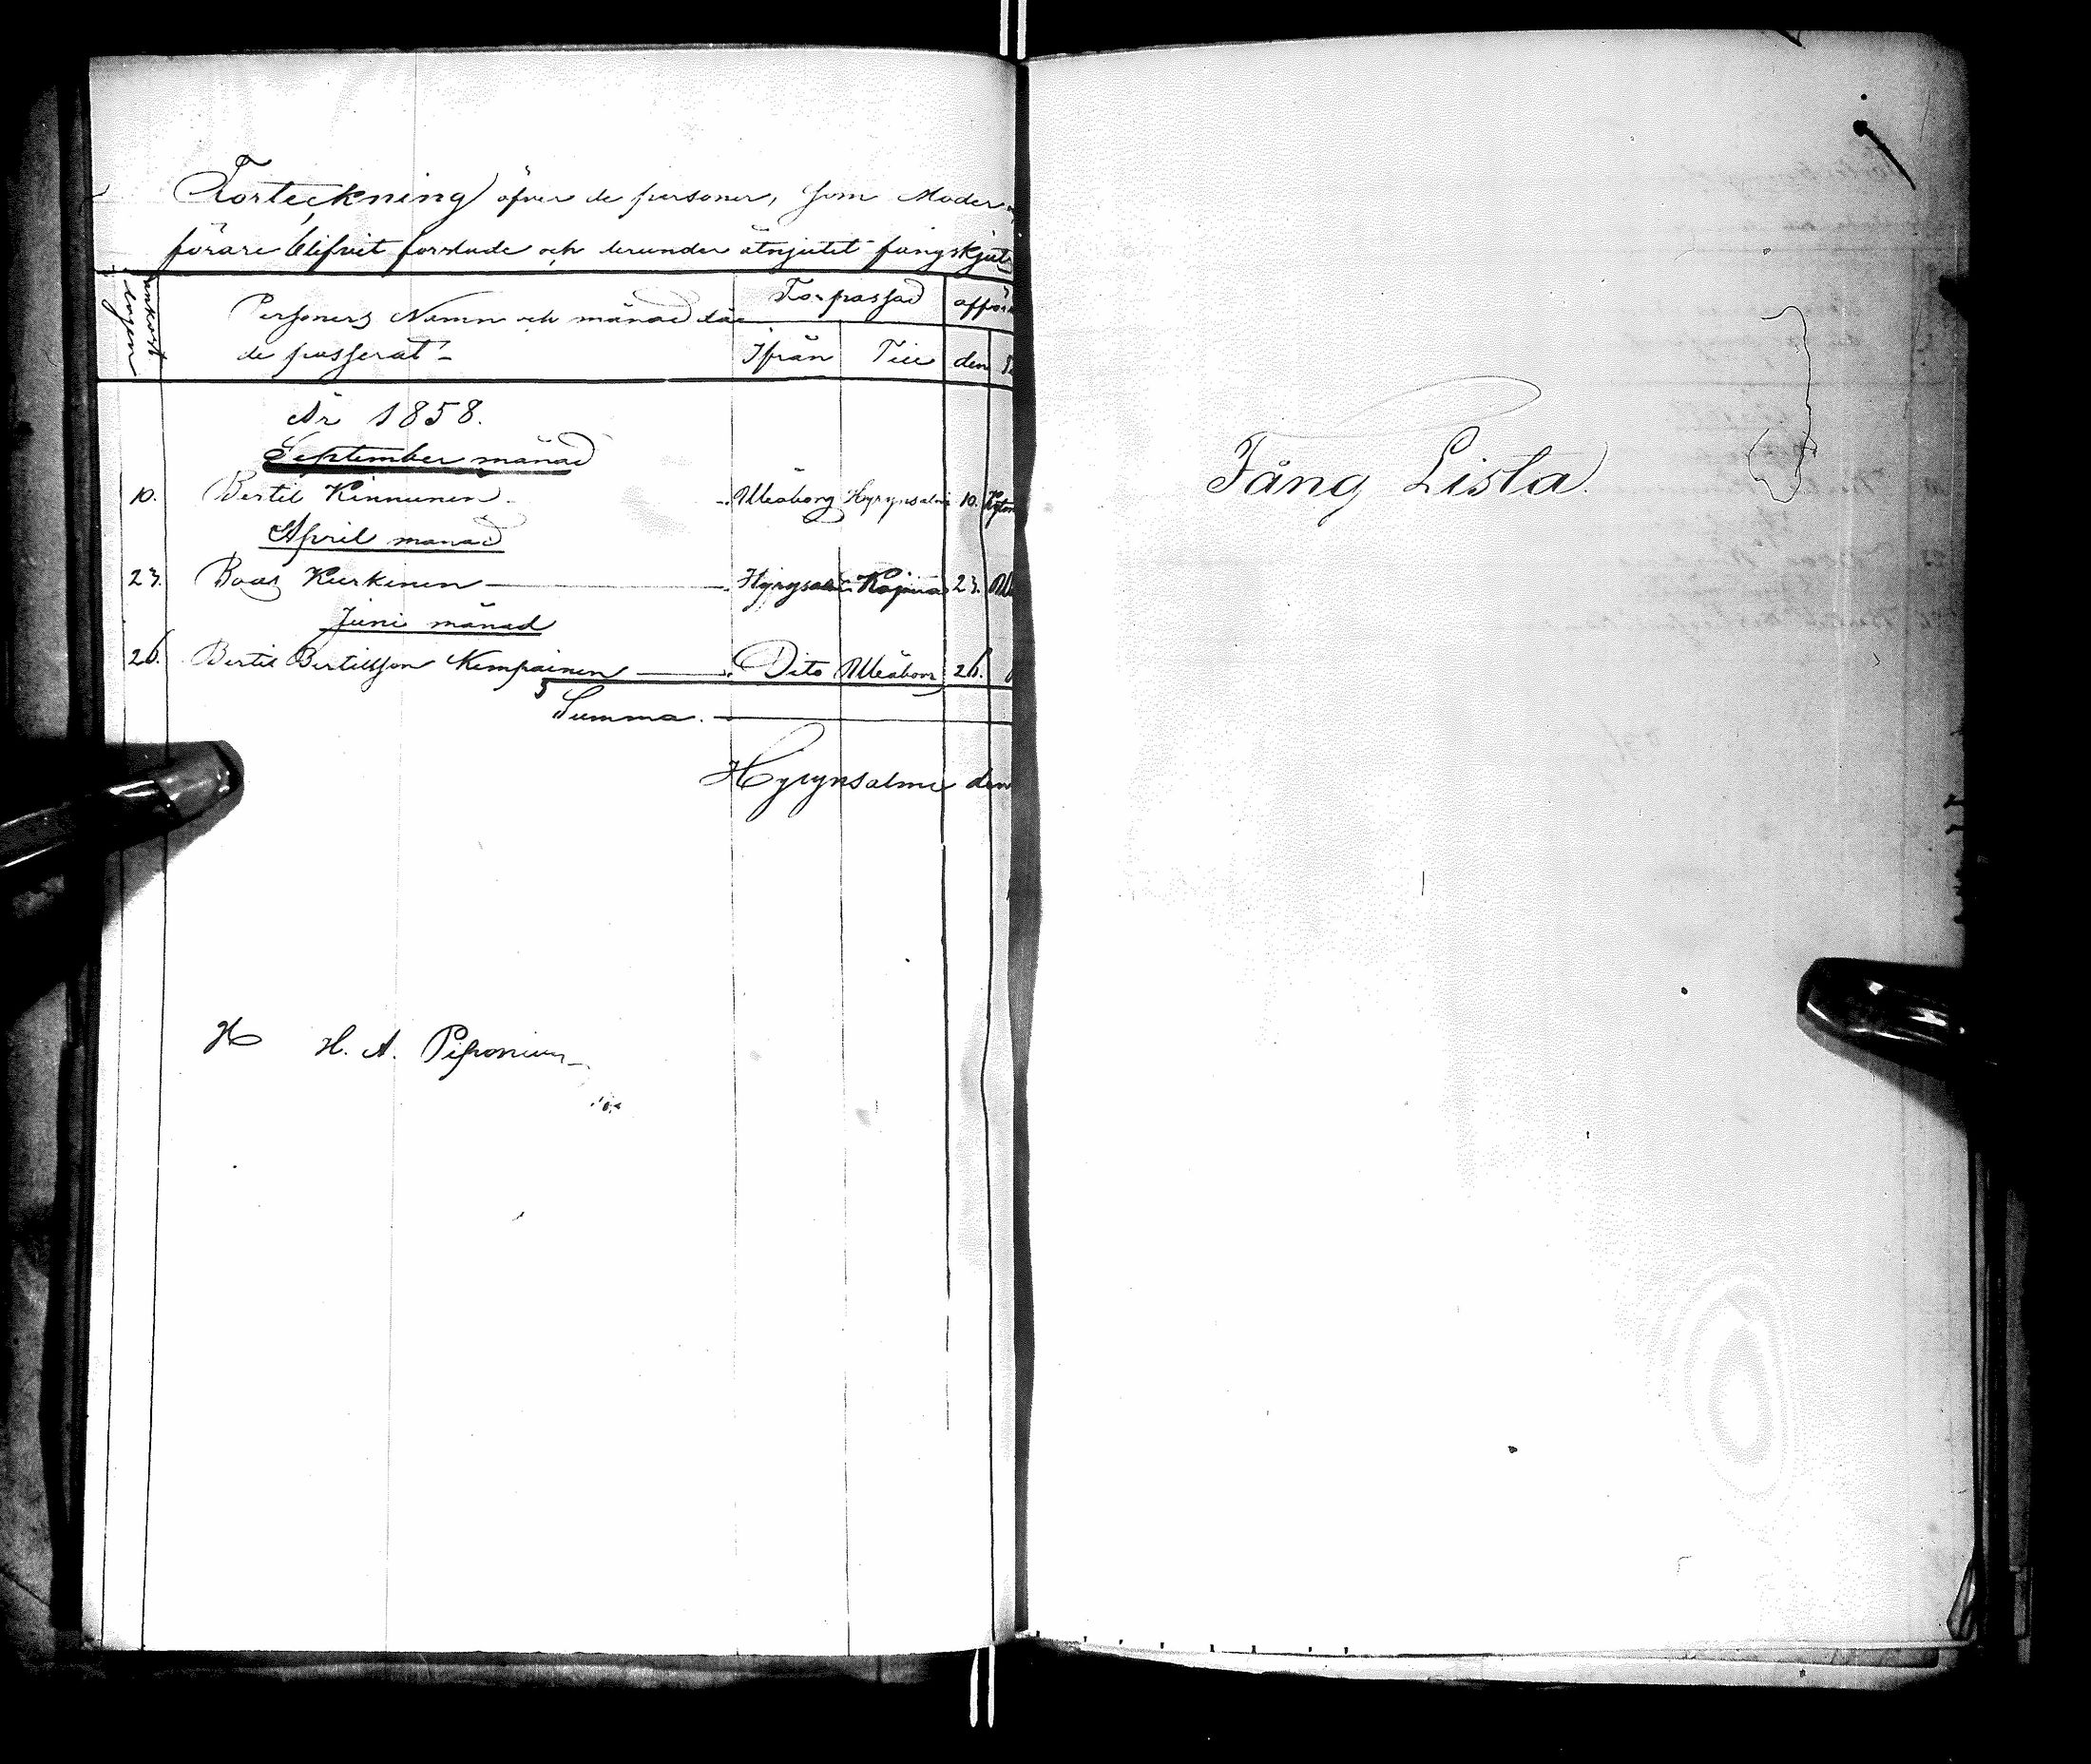 Förteckning öfver de personer, som Moder
förare blifvit forslade och derunder åtnjutit fångskjuts
ankomst dagen
Personers Namn och månad då
de passerat
Förpassad
Ifrån Till den
År 1858.
September månad
10. Bertil Kinnunen Uleåborg Hyrynsalmi 10.
April månad
23. Boas Keerkinen Hyrynsalmi Kajana 23.
Juni månad
26. Bertil Bertilsson Kempainen Dito Uleåborg 26.
Summa.
Hyrynsalmi den
H. A.
Fång Lista